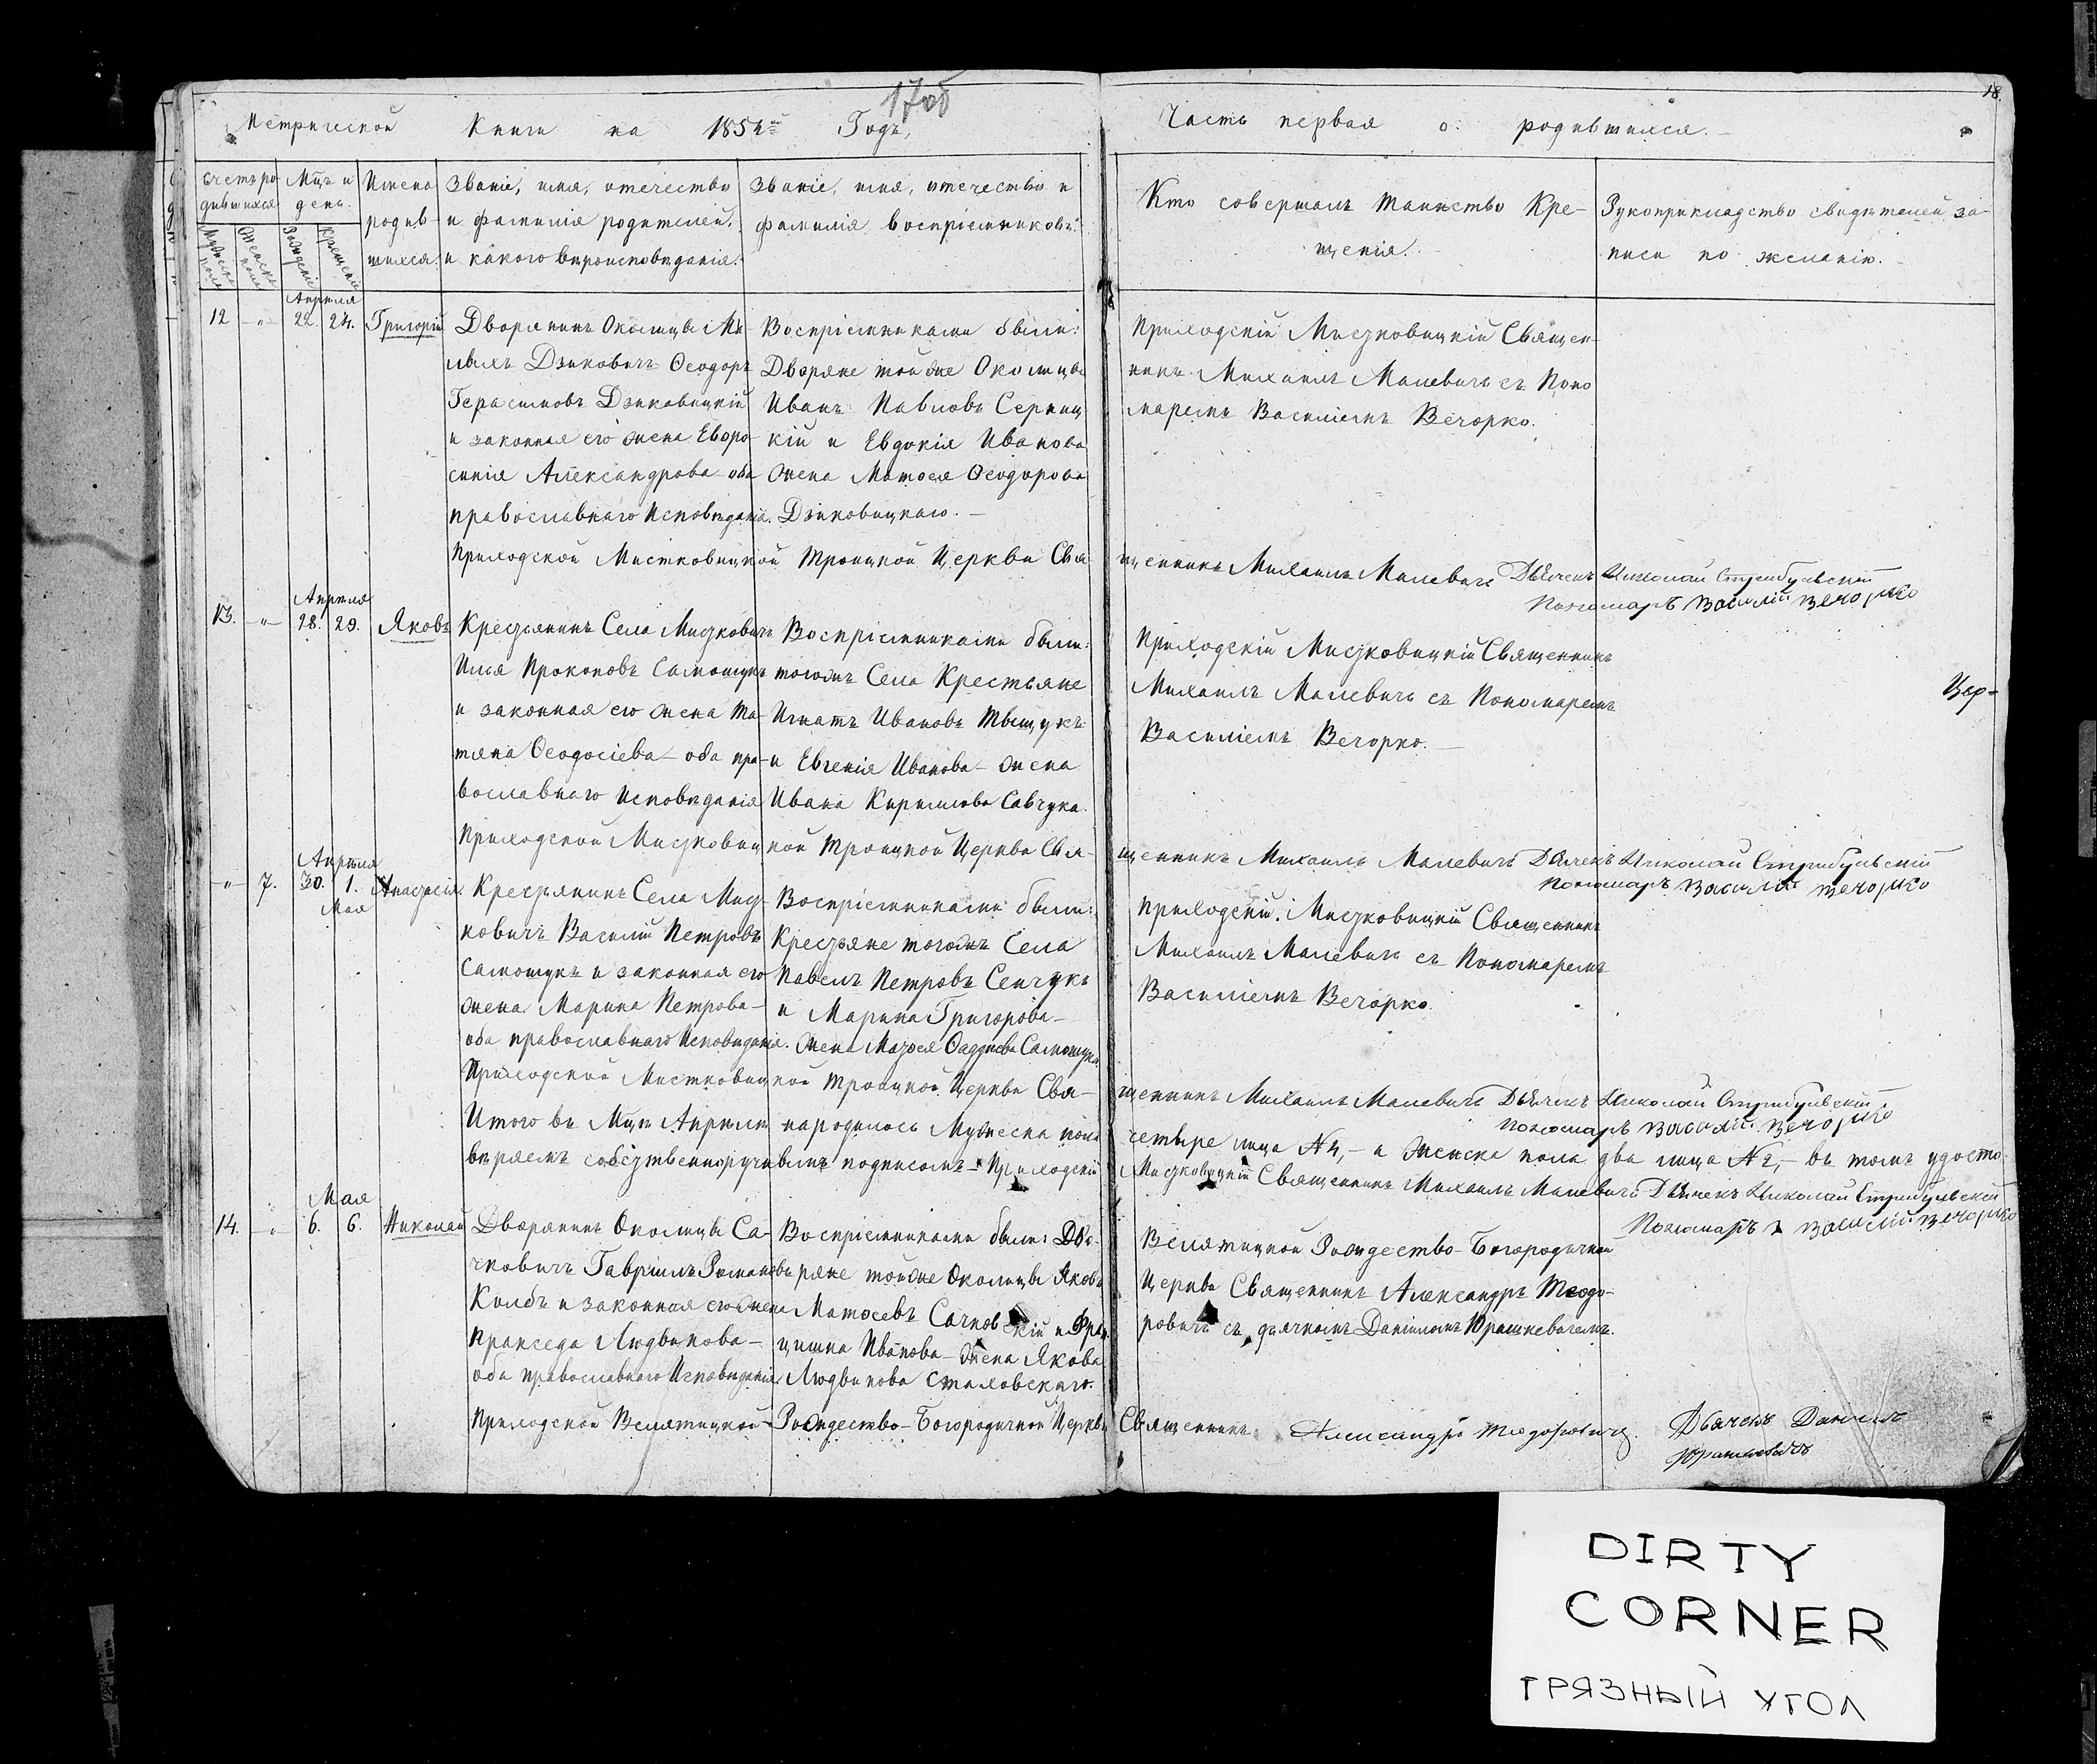 17об
18.
Метрической Книги на 1854й Годъ,
Часть первая о родившихся.
Счетъ ро-
дившихся
Мужеска пола
Женска пола
Мцъ и
день.
Рожденія
Крещенія
Имена
родив-
шихся.
Званіе, имя, отечество
и фамилія родителей,
и какого вѣроисповѣданія.
Званіе, имя, отечество и
фамилія воспріемниковъ.
Кто совершалъ таинство Кре-
щенія.
Рукоприкладство свидѣтелей за-
писи по желанію.
Апрѣля
12 -"- 22. 24. Григорій
Дворянинъ Околицы Ма-
лыхъ Дзиковичъ Ѳеодоръ
Герасимовъ Дзиковицкій
и законная его жена Евро-
синія Александрова оба
православнаго Исповѣданія.
Воспріемниками были:
Дворяне той же Околицы
Иванъ Павловъ Серниц
кій и Евдокія Иванова
жена Матѳея Ѳеодорова
Дзиковицкаго. -
Приходскій Мисзковицкій Священ-
никъ Михаилъ Малевичъ съ Поно
маремъ Василіемъ Вечорко.
Приходской Мистковицкой Троицкой Церкви Свя
щенникъ Михаилъ Малевичъ Дьячекъ Николай Стрибульскій
Пономаръ Василій Вечорко
Апрѣля
13. -"- 28. 29. Яковъ
Крестьянинъ Села Мисткович
Илья Прокоповъ Самошукъ
и законная его жена Та-
тяна Ѳеодосіева - оба пра-
вославнаго Исповѣданія
Воспріемниками были:
тогожъ Села Крестьяне
Игнатъ Ивановъ
и Евгенія Иванова - жена
Ивана Кирилова Савчука.
Приходскій Мистковицкій Священникъ
Михаилъ Малевичъ съ Пономаремъ
Василіемъ Вечорко. -
Цер-
Приходской Мистковицкой Троицкой Церкви Свя-
щенникъ Михаилъ Малевичъ Дьячекъ Николай Стрибульскій
Пономаръ Василій Вечорко
Апрѣля
-"- 7. 30. 1. Анастасія.
Мая
Крестьянинъ Села Мист-
ковичъ Василій Петровъ
Самошукъ и законная его
жена Марина Петрова -
оба православнаго Исповѣданія.
Воспріемниками были:
Крестьяне тогожъ Села
Павелъ Петровъ Сенчукъ
и Марина Григорова -
жена Матѳея Ѳаддѣева Самошука.
Приходскій Мистковицкій Священникъ
Михаилъ Малевичъ съ Пономаремъ
Василіемъ Вечорко.
Приходской Мистковицкой Троицкой Церкви Свя-
щенникъ Михаилъ Малевичъ Дьячекъ Николай Стрибульскій
Пономаръ Василій Вечорко
Итого въ Мцѣ Апрѣли народилось Мужеска пола четыре лица №4, - а Женска пола два лица №2, - въ томъ удосто-
вѣряемъ собственноручнымъ подписомъ - Приходскій Мистковицкій Священникъ Михаилъ Малевичъ Дьячекъ Николай Стрибульскій
Пономаръ Василій Вечорко
Мая
14. -"- 6. 6. Николай
Дворянинъ Околицы Са-
чковичъ Гавріилъ Романовъ
Колбъ и законная его жена
Праксeда Людвикова -
оба православнаго Исповѣданія.
Воспріемниками были: Дво-
ряне тойже Околицы Яковъ
Матѳеевъ Сачковскій и Фран
цишка Иванова - жена Якова
Людвикова Стаховскаго.
Велятицкой Рождество-Богородичной
Церкви Священникъ Александръ Теодо-
ровичъ съ дьячкомъ Даніиломъ Юрашкевичемъ.
Приходской Велятицкой Рождество-Богородичной Церкви Священникъ Александръ Теодоровичъ.
Дьячекъ Даніилъ
Юрашкевичъ
DIRTY
CORNER
ГРЯЗНЫЙ УГОЛ